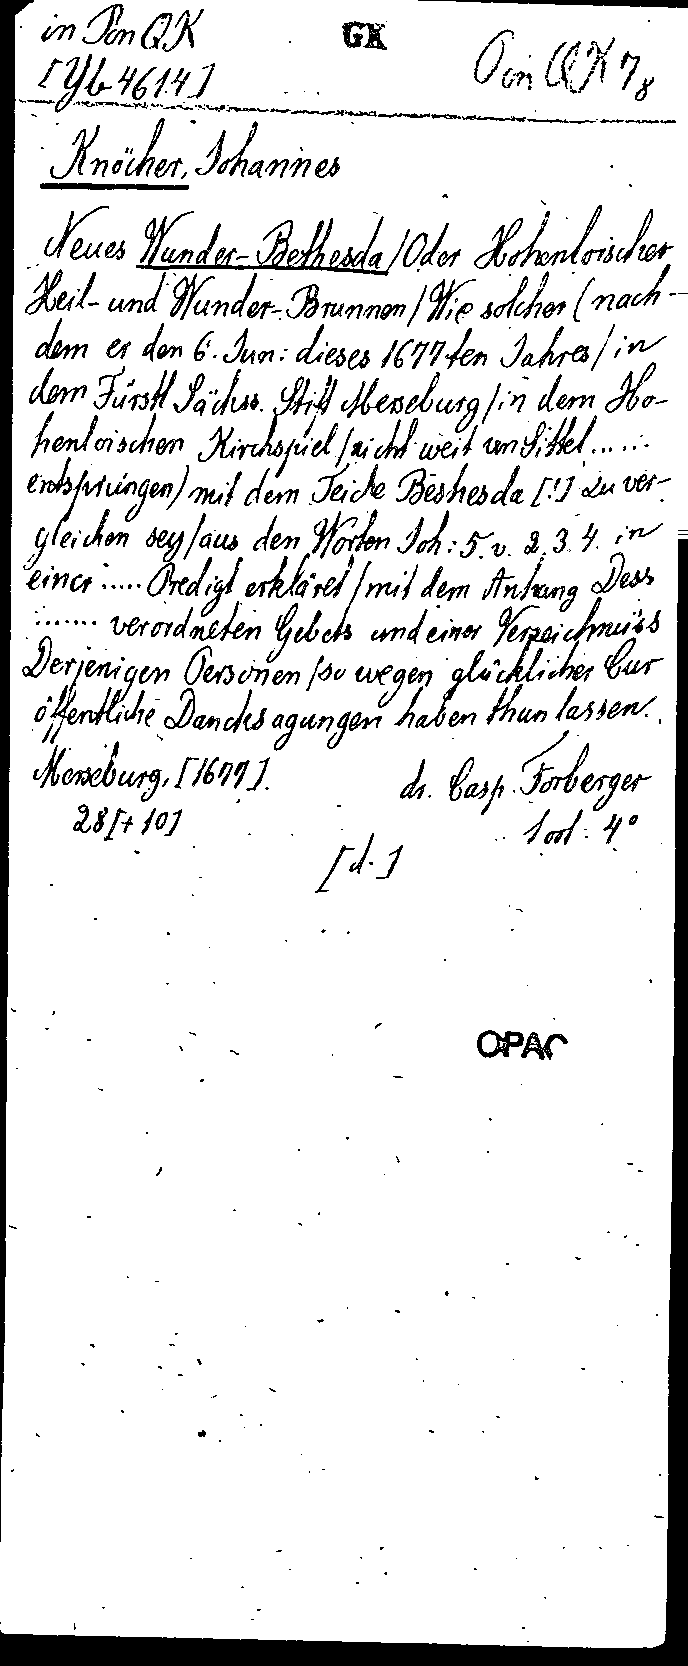 in Pon QK
GK
[Yb 4614]
Pon QK 78
Knöcher, Johannes
Neues Wunder-Bethesda/Oder Hohenloischer
Heil- und Wunder-Brunnen/Wie solcher (nach-
dem er den 6. Jun: dieses 1677ten Jahres/in
dem Fürstl Sächss. Stift Merseburg/in dem Ho-
henloischen Kirchspiel/nicht weit von Sittel......
entsprungen) mit dem Teiche Beshesda [!] zu ver-
gleichen sey/aus den Worten Joh: 5. v. 2. 3. 4. in
einer ..... Predigt erkläret/mit dem Anhang Dess
....... verordneten Gebets und einer Verzeichnüss
Derjenigen Personen/so wegen glücklicher Cur
öffentliche Dancksagungen haben thun lassen.
Merseburg, [1677].
dr. Casp. Forberger
28 [+ 10]
4°
[d.]
OPAC